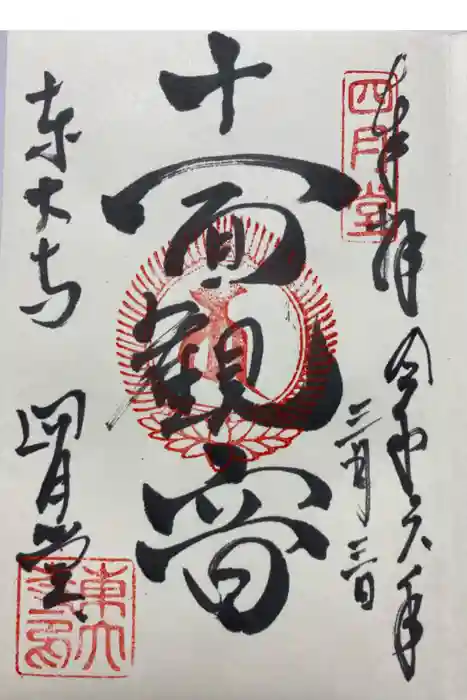 四月堂
奉拝
令和六年
三月三日
十一面観音
東大寺
四月堂
東大